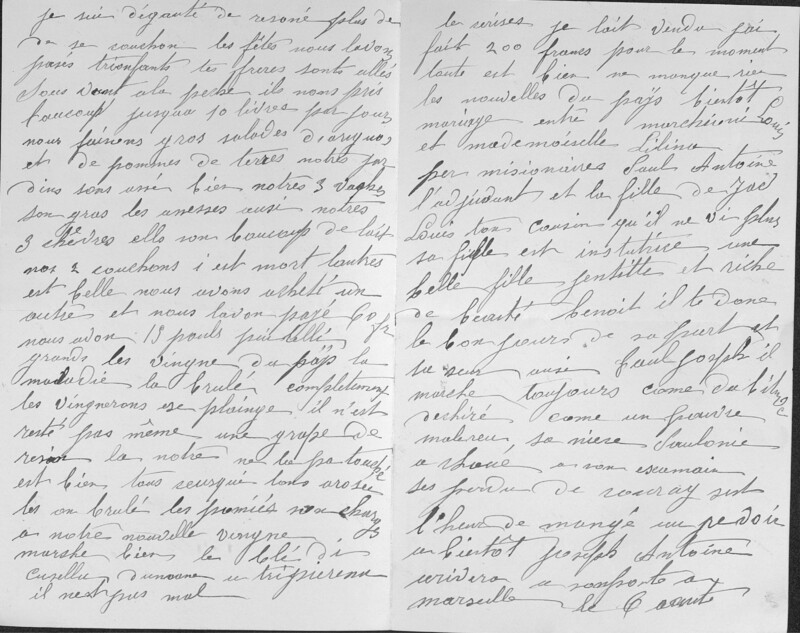 je sui dégauté de resoné plus de
de se couchon les fêtes nous lavon
pases trionfants tes freres sonts allés
sous vant a la peche ils nous pris
baucoup jusqua 10 livres par jour
nous faisions gros salades
et de pommes de terres notres jar
dins sons ausé bien notres 3 vaches
son gras les anesses ausi notres
3 chevres ells son baucoup de lait
nos 2 couchons 1 est mort lautres
est belle nous avons acheté un
autre et nous lavon payé 60 fr
nous avon 13 pouls
grands les vingne du pays la
maladie la brulé completement
les vingnerons se plainge il n'est
resté pas même une grape de
resin la notre ne la pa touché
est bien tous ceusque lons arosés
les on brulé les
a notre nouvelle vingne
marche bien le blé di
Casella
il nest pas mal
les cerises je lait vendu jai
fait 200 francs pour le moment
toute est bien ne manque rien
les nouvelles du pays bientôt
mariage entre Louis
et mademoiselle Lilina
per misionaires Paul Antoine
l'adjudant et la fille de
Louis ton cousin qu'il ne vi plus
sa fille est institutrice une
belle fille jentille et riche
de beauté Benoit il te done
le bonjours de sa part et
sa seur ausi Paul Joseph il
marche toujours come dabitude
dechiré come un pauvre
malereu sa niese Paulonie
a choué a son examain
ses perdu de couray set
l'heure de mangé au revoir
a bientôt Joseph Antoine
arivera
marseille le